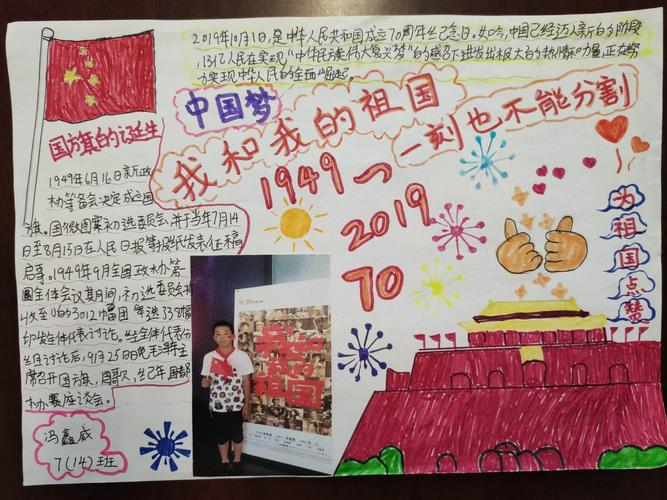 2019年10月1日,是中华人民共和国成立70周年纪念日。如今,中国已经迈入新的阶段
,13亿人民在实现"中华民族伟大复兴梦"的感召下迸发出极大的热情和力量,正在努
力实现中华人民的全面崛起。
中国梦
我和我的祖国
一刻也不能分割
1949~2019
70
国旗的诞生
1949年6月16日新政
协筹备会决定成立国
旗、国徽图案初选委员会并于当年7月14
日至8月15日在人民日报等报纸发表征稿
启事。1949年9月全国政协第
一届全体会议期间,初选委员会将
收到的3012幅图
筛选38幅
印发全体代表讨论。经全体代表分
组讨论后,9月25日晚毛泽东主
席召开国旗、国歌、纪年、国都
协商座谈会。
冯鑫威
7(14)班
为祖国点赞
9.30
我和我的祖国